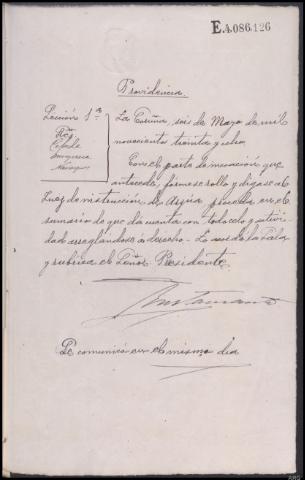 E A.086,126
Providencia.
Sección 1ª
La Coruña, seis de Mayo de mil
novecientos treinta y ocho
Con el parte de incoación que
antecede, fórmese rollo y dígase al
Juez de instrucción de Arzúa proceda en el
sumario de que da cuenta con todo celo y activi
dad arreglándose a derecho. Lo acordó la Sala
y rubrica el Señor Presidente.
Se comunicó en el mismo día